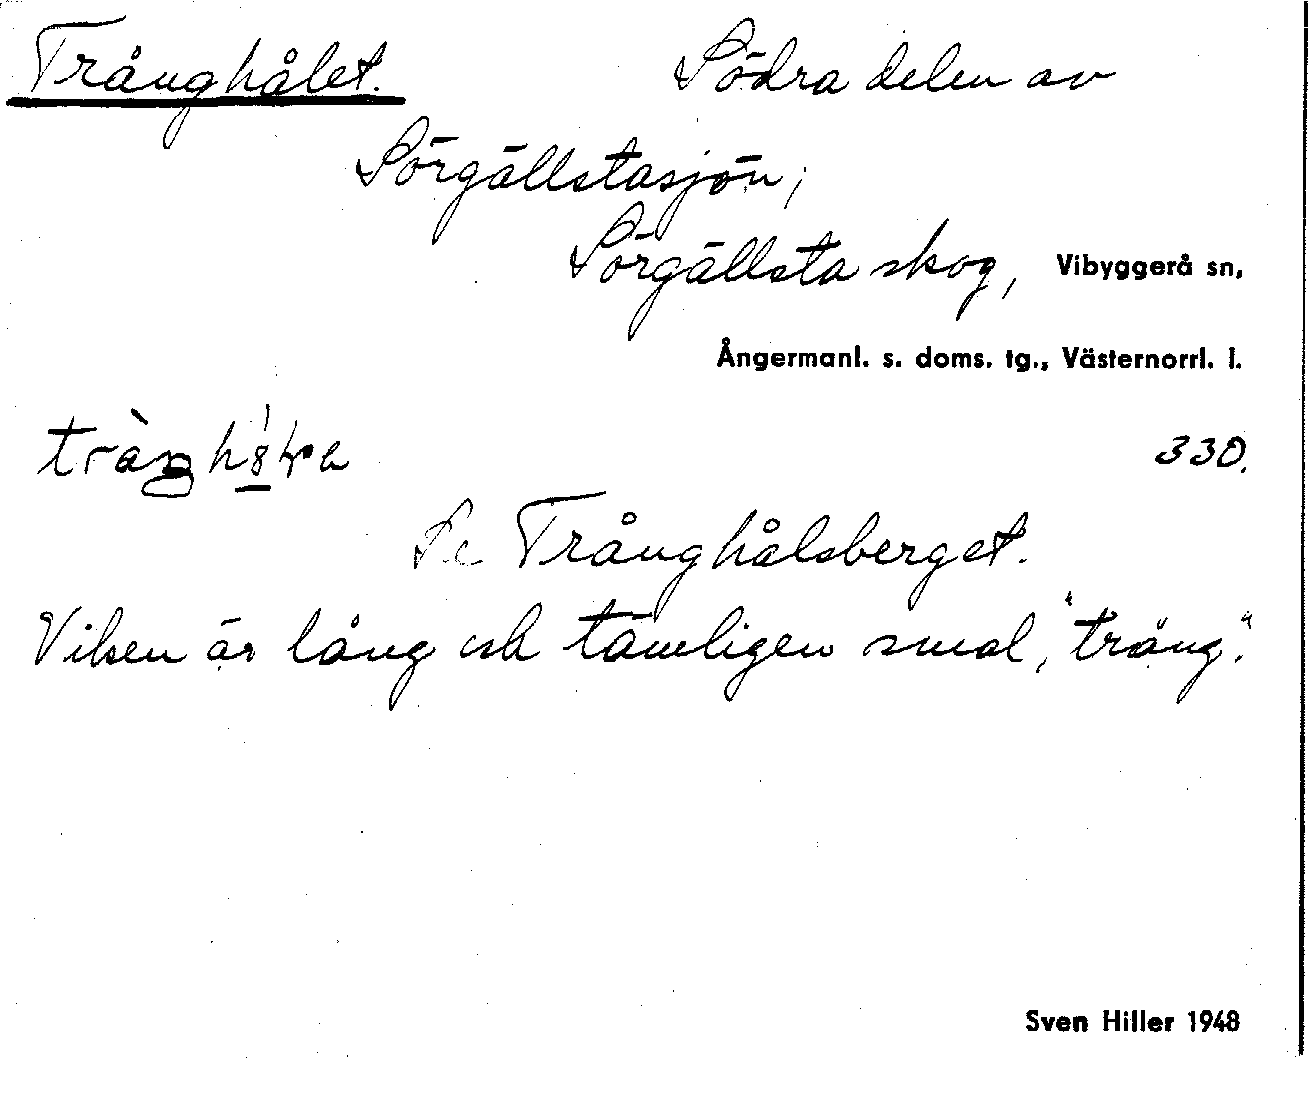 Trånghålet. Södra delen av
Sörgällstasjön,
Sörgällsta skog, Vibyggerå sn,
Ångermanl. s. doms. tg., Västernorrl. l.
330.
Se Trånghålsberget.
Viken är lång och tämligen smal, "trång".
Sven Hiller 1948